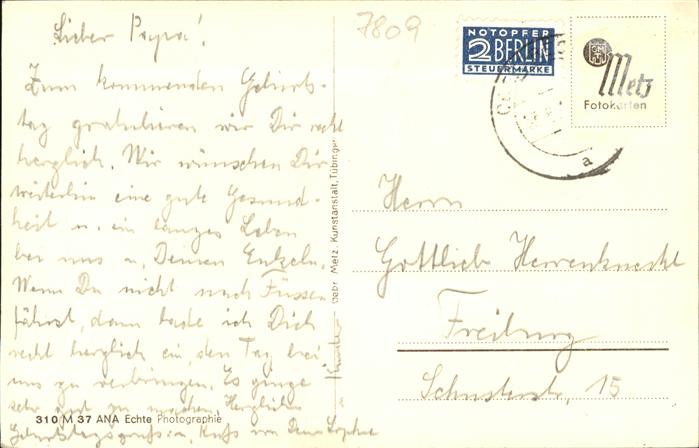 Lieber Papa!
Zum kommenden Geburts-
tag gratulieren wir Dir recht
herzlich. Wir wünschen Dir
weiterhin eine gute Gesund-
heit u. ein langes Leben
bei uns u. Deinen Enkeln.
Wenn Du nicht nach Füssen
fährst, dann lade ich Dich
recht herzlich ein, den Tag bei
uns zu verbringen. Es ginge
sehr gut zu machen. Herzlichen
Geburtstagsgruss u. Kuss von Deiner Sophie
310 M 37 ANA Echte Photographie
Gebr. Metz, Kunstanstalt, Tübingen
7809
NOTOPFER
2 BERLIN
STEUERMARKE
Metz
Fotokarten
a
Herrn
Gottlieb Herrenknecht
Freiburg
Schusterstr. 15